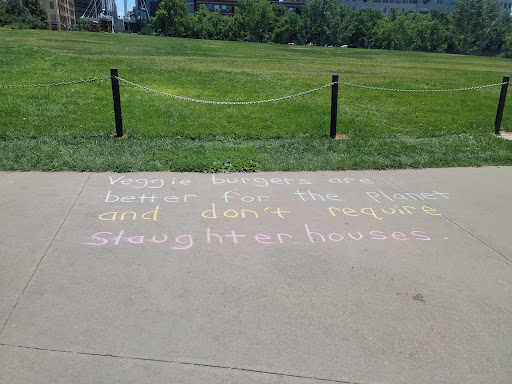 Veggie burgers are
better for the planet
and don't require
Slaughter houses.